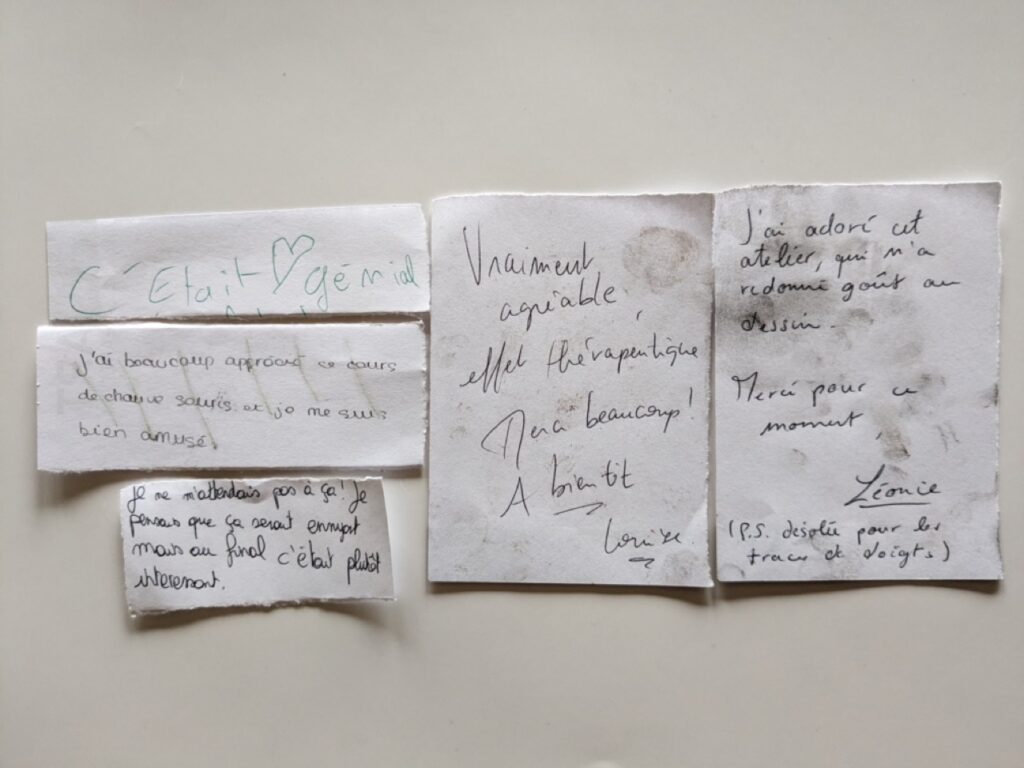 C'Etait génial
J'ai beaucoup apprécié ce cours
de chauve souris et je me suis
bien amusé.
Je ne m'attendais pas à ça! Je
pensais que ça serait ennuyant
mais au final c'était plutôt
interessant.
Vraiment
agréable,
effet thérapeutique
Merci beaucoup!
A bientôt
Louise
J'ai adoré cet
atelier, qui m'a
redonné goût au
dessin.
Merci pour ce
moment,
Léonie
(P.S. désolée pour les
traces de doigts)